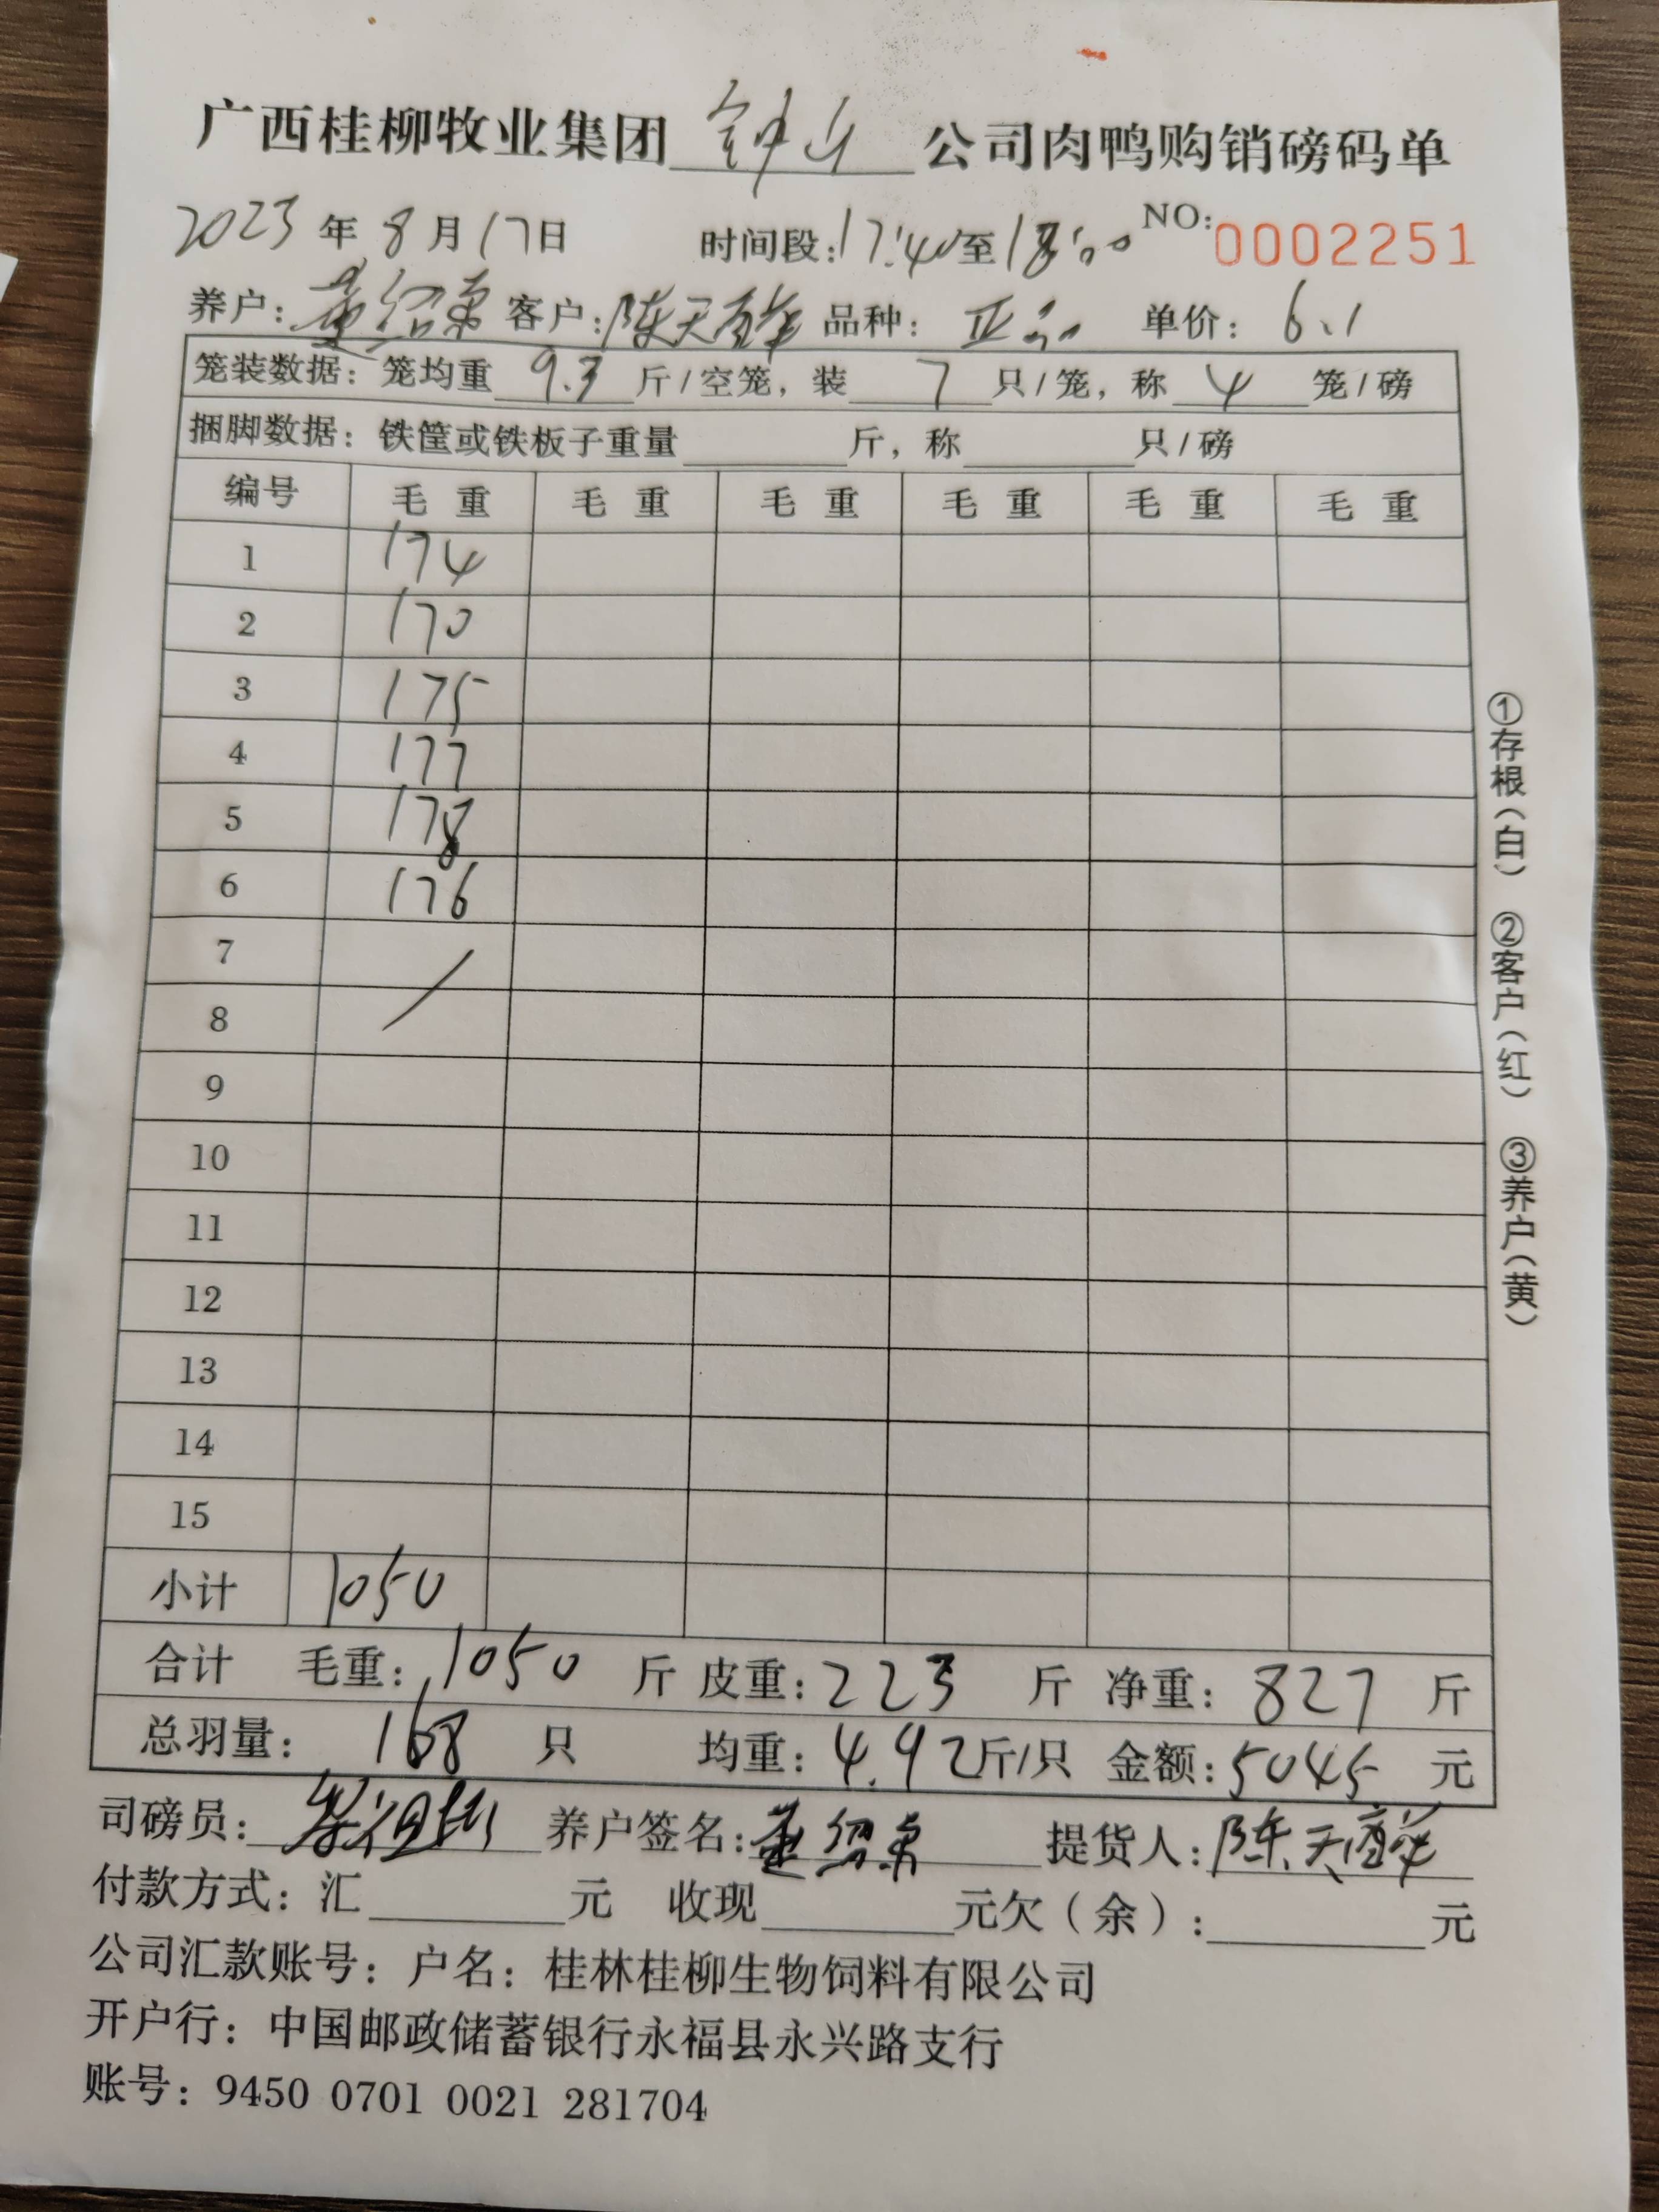 广西桂柳牧业集团 钟山 公司肉鸭购销磅码单
2023 年 8 月 17 日 时间段：17:40 至 18:00 NO: 0002251
养户： 客户：陈天 品种： 单价：6.1
笼装数据：笼均重 9.3 斤/空笼，装 7 只/笼，称 4 笼/磅
捆脚数据：铁筐或铁板子重量 斤，称 只/磅
编号 毛重 毛重 毛重 毛重 毛重 毛重
1 174
2 170
3 175
4 177
5 178
6 176
7
8
9
10
11
12
13
14
15
小计 1050
合计 毛重：1050 斤 皮重：223 斤 净重：827 斤
总羽量：168 只 均重：4.92 斤/只 金额：5045 元
司磅员： 养户签名： 提货人：陈天
付款方式：汇 元 收现 元欠（余）： 元
公司汇款账号：户名：桂林桂柳生物饲料有限公司
开户行：中国邮政储蓄银行永福县永兴路支行
账号：9450 0701 0021 281704
①存根（白） ②客户（红） ③养户（黄）